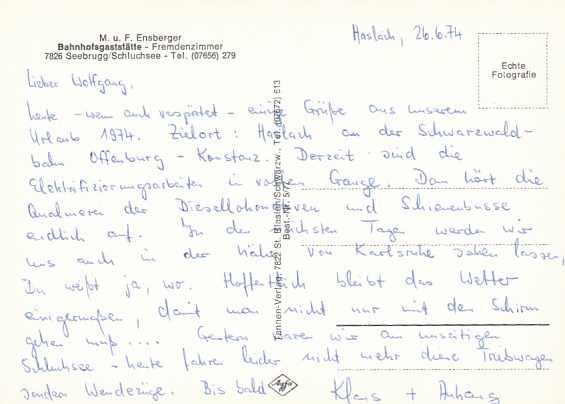 M. u. F. Ensberger
Bahnhofsgaststätte - Fremdenzimmer
7826 Seebrugg/Schluchsee - Tel. (07656) 279
Haslach, 26.6.74
Echte
Fotografie
Lieber Wolfgang,
heute - wenn auch verspätet - einige Grüße aus unserem
Urlaub 1974. Zielort: Haslach an der Schwarzwald-
bahn Offenburg - Konstanz. Derzeit sind die
Elektrifizierungsarbeiten in vollem Gange. Dann hört die
Qualmerei der Diesellokomotiven und Schienenbusse
endlich auf. In den nächsten Tagen werden wir
uns auch in der Nähe von Karlsruhe sehen lassen,
Du weißt ja, wo. Hoffentlich bleibt das Wetter
einigermaßen, damit man nicht nur mit dem Schirm
gehen muß.... Gestern waren wir am unseitigen
Schluchsee - heute fahren leider nicht mehr diese Triebwagen
sondern Wendezüge. Bis bald
Klaus + Anhang
Tannen-Verlag, 7822 St. Blasien/Schwarzw., Tel. (07672) 613
Best.-Nr. 5/77
Agfa